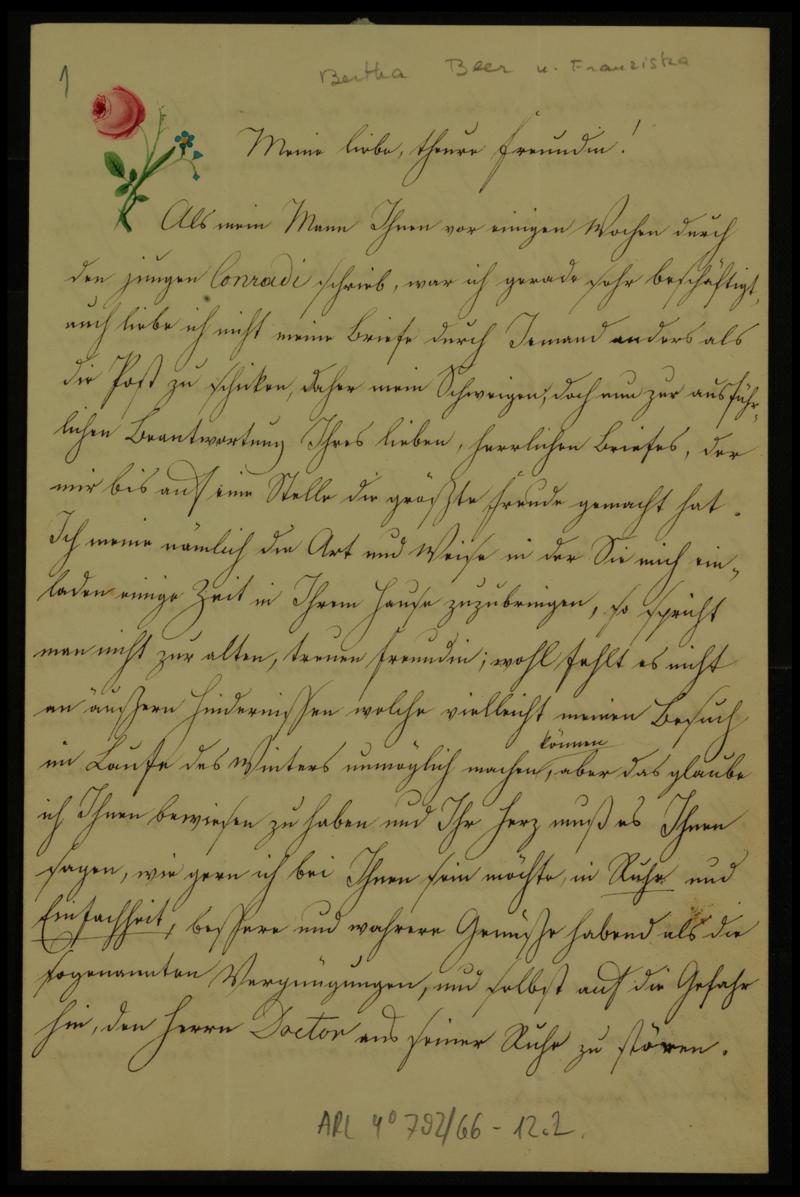 1
Bertha Beer u. Franziska
Meine liebe, theure Freundin!
Als mein Mann Ihnen vor einigen Wochen durch
den jungen Conradi schrieb, war ich gerade sehr beschäftigt,
auch liebe ich nicht meine Briefe durch Jemand anders als
die Post zu schicken, daher mein Schweigen; doch nun zur ausführ-
lichen Beantwortung Ihres lieben, herrlichen Briefes, der
mir bis auf eine Stelle die größte Freude gemacht hat.
Ich meine nämlich die Art und Weise in der Sie mich ein-
laden einige Zeit in Ihrem Hause zuzubringen, so spricht
man nicht zur alten, treuen Freundin; wohl fehlt es nicht
an äußern Hindernissen welche vielleicht meinen Besuch
im Laufe des Winters unmöglich machen können, aber das glaube
ich Ihnen bewiesen zu haben und Ihr Herz muß es Ihnen
sagen, wie gern ich bei Ihnen sein möchte, in Ruhe und
Einfachheit, bessere und wahrere Genüsse habend als die
sogenannten Vergnügungen, und selbst auf die Gefahr
hin, den Herrn Doctor aus seiner Ruhe zu stören.
ARC 4° 792/66 - 12.2